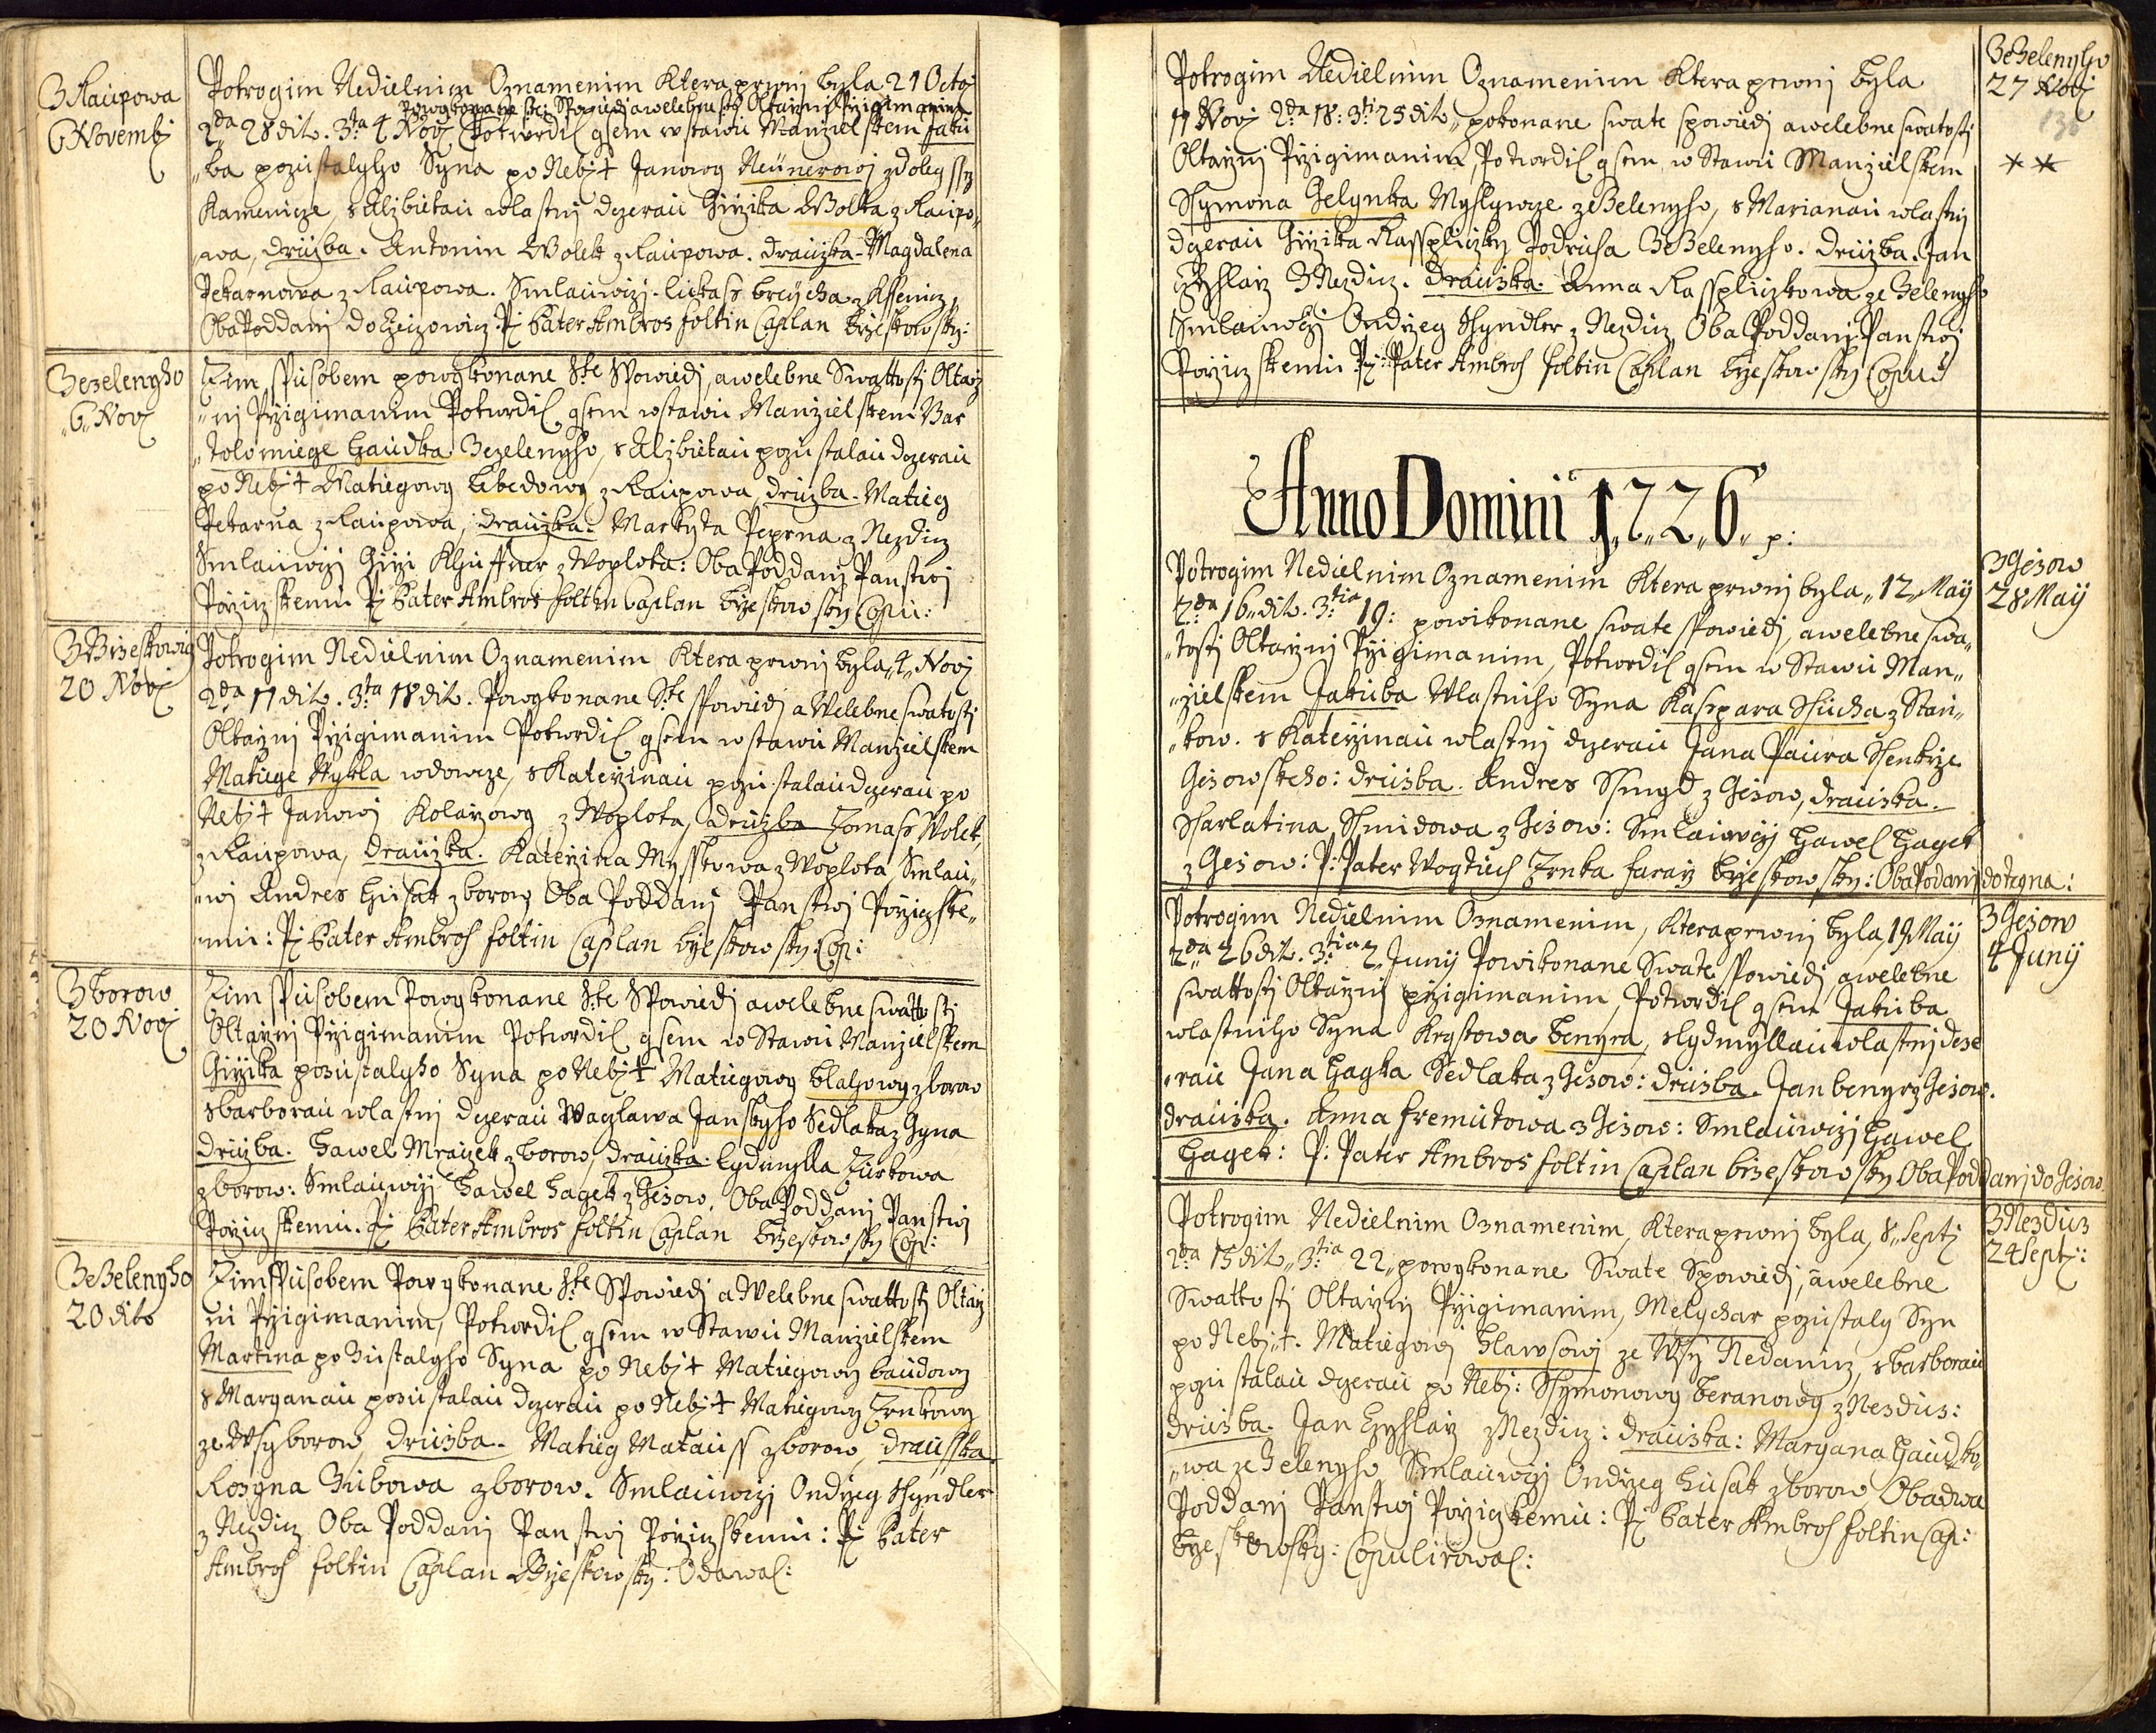 Z Raupowa
6 Novembj
Potrogim Nedielnim Oznamenim Ktera prwnj byla 21 Octoj
powykonane Ste: Spowiedj a welebnosty Oltařnj Přigimanim
2da 28 dito. 3ta 4 Novj Potwrdil gsem w stawu Manželskem Jaku
„ba pozustalyho Syna po Nebj† Janowy Neünerowj z dolegssy
Kamenicze, s Alzbietau wlastnj dczerau Giržika Wolka z Raupo„
„wa, družba. Antonin Wolek z Raupowa. draužka - Magdalena
Pekarnowa z Raupowa. Smlauwčj - Lukass breycha z Kssenicz,
Oba Poddanj do Czeizowicz Pj Pater Ambros foltin Caplan Bržeskowsky:
Ze zelenyho
„6„ Novj
Tim spusobem powykonane Ste Spowiedj, a welebne Swattosti Oltarž
„nj Pržigimanim Potwrdil gsem w stawu Manželskem Bar
„tolomiege Haudka Ze zelenyho, s Alzbietau pozustalau dczerau
po Nebj† Matiegowy Lebedowy z Raupowa, družba - Matieg
Pekarna z Raupowa, draužka - Markyta Peprna z Nezdicz
Smlauwčj Girži Khuffner z Woplota: Oba Poddanj Panstwj
Pořičzskemu Pj Pater Ambros foltin Caplan Bržeskowsky Copu:
Z Brzeskowicz
20 Novj
Potrogim Nedielnim Oznamenim Ktera prwnj byla „4„ Novj
2da 11 dito. 3ta 18 dito. Powykonane Ste Spowiedj a Welebne swatosti
Oltařnj Pržigimanim Potwrdil gsem w stawu Manželskem
Matiege Wykla wdowcze, s Kateržinau pozustalau dczerau po
Nebj† Janowj Kolaržowy z Woplota, družba Tomass Wolek,
z Raupowa, draužka. Kateržina Mysskowa z Woplota Smlau„
„wj Andres Husak z borow Oba Poddanj Panstwj Pořiczske„
„mu: Pj Pater Ambros foltin Caplan bržeskowsky: Cop:
Z borow
20 Novj
Tim spusobem Powykonane Ste Spowiedj a welebne swattosti
Oltařnj Pržigimanim Potwrdil gsem w Stawu Manželskem
Giržika pozustalyho Syna po Nebj† Matiegowy blahowy z borow
s barborau wlastnj dczerau Waczlawa Janskyho Sedlaka z Gyna
družba. Hawel Mraczek z borow, draužka. Lydmylla Turkowa
z borow: Smlauwčj Hawel Hagek z Gezow, Oba Poddanj Panstwj
Pořiczskemu. Pj Pater Ambros foltin Caplan bržeskowsky Cop:
Ze Zelenyho
20 dito
Tim spusobem Powykonane Ste Spowiedj a Welebne swattosti Oltarž
ni Pržigimanim, Potwrdil gsem w Stawu Manželskem
Martina po Zustalyho Syna po Nebj† Matiegowy baudowy
s Maryanau pozustalau dczerau po Nebj† Matiegowy Trnkowy
ze Wsy borow, družba - Matieg Matauss z borow, draužka
Rozyna Zubowa z borow. Smlauwčj Ondržeg Shyndler
z Nezdicz Oba Poddanj Panstwj Pořiczskemu: Pj Pater
Ambros foltin Caplan Bržeskowsky: Odawal:
Ze Zelenyho
27 Novj
136
**
Potrogim Nedielnim Oznamenim Ktera prwnj byla
11 Novj 2da 18: 3ti 25 dito „ pokonane swate spowiedj a welebne swatosti
Oltaržnj Pržigimanim, Potwrdil gsem w Stawu Manželskem
Shymona Gelynka Myslywcze ze Zelenyho, s Marianau wlastnj
dczerau Giržika Rasspliczky Podruha Ze Zelenyho. družba. Jan
Tzyhlarz Z Nezdicz. draužka. Anna Rasspliczkowa ze Zelenyho
Smlauwčj Ondržeg Shyndler z Nezdicz Oba Poddanj Panstwj
Pořiczskemu Pj: Pater Ambros foltin Caplan bržeskowsky Copul
Anno Domini 1„7„2„6„ p:
Z Gezow
28 May
Potrogim Nedielnim Oznamenim Ktera prwnj byla „12„ May
2da 16 dito. 3tia 19: powikonane swate spowiedj, a welebne swa„
„tosti Oltaržnj Pržigimanim, Potwrdil gsem w Stawu Man„
„želskem Jakuba Wlastniho Syna Kasspara Shücha z Stan„
„kow. s Kateržinau wlastnj dczerau Jana Paura Shenkrže
Gezowskeho: družba. Andres Shmyd z Gezow, draužka.
Sharlatina Shmidowa z Gezow: Smlauwčj Hawel Hagek
z Gezow: P: Pater Wogtiech Trnka farař Bržeskowsky: Oba Podanj do Tegna:
Z Gezow
4 Juny
Potrogim Nedielnim Oznamenim, Ktera prwnj byla, 19 May
2da 26 dito. 3tia 2 Juny Powikonane Swate spowiedj a welebne
swattosti Oltaržnj pržigimanim, Potwrdil gsem Jakuba
wlastniho Syna Krystowa Benyra, s Lydmyllau wlastnj dcze
„rau Jana Hagka Sedlaka z Gezow: družba. Jan benyr z Gezow.
draužka. Anna Fremutowa z Gezow: Smlauwčj Hawel
Hagek: P: Pater Ambros foltin Caplan brzeskowsky Oba Poddanj do Gezow
Z Nezdicz
24 Septj:
Potrogim Nedielnim Oznamenim, Ktera prwnj byla, 8„ Septj
2da 15 dito„ 3tia 22„ powykonane Swate Spowiedj, a welebne
Swattosti Oltaržnj Pržigimanim, Melychar pozustaly Syn
po Nebj†. Matiegowj Hlawsowj ze Wsy Nedanicz, s barborau
pozustalau dczerau po Nebj: Shymonowy beranowy z Nezdicz:
družba. Jan Tzyhlarz z Nezdicz: draužka: Maryana Haudko„
„wa ze Zelenyho Smlauwčj Ondržeg Husak z borow, Obadwa
Poddanj Panstwj Pořiczkemu: Pj Pater Ambros foltin Cap:
bržeskowsky: Copulirowal: